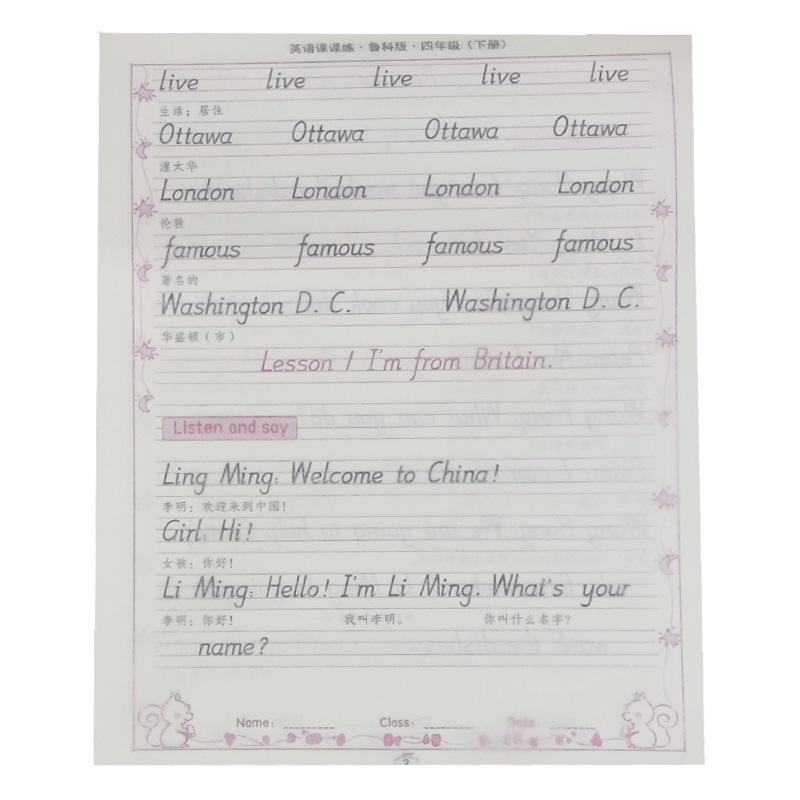 英语课课练·鲁科版·四年级（下册）
live live live live live
生活；居住
Ottawa Ottawa Ottawa Ottawa
渥太华
London London London London
伦敦
famous famous famous famous
著名的
Washington D. C. Washington D. C.
华盛顿（市）
Lesson 1 I'm from Britain.
Listen and say
Ling Ming: Welcome to China!
李明：欢迎来到中国！
Girl: Hi!
女孩：你好！
Li Ming: Hello! I'm Li Ming. What's your
李明：你好！ 我叫李明。 你叫什么名字？
name?
Name: Class: Date:
2